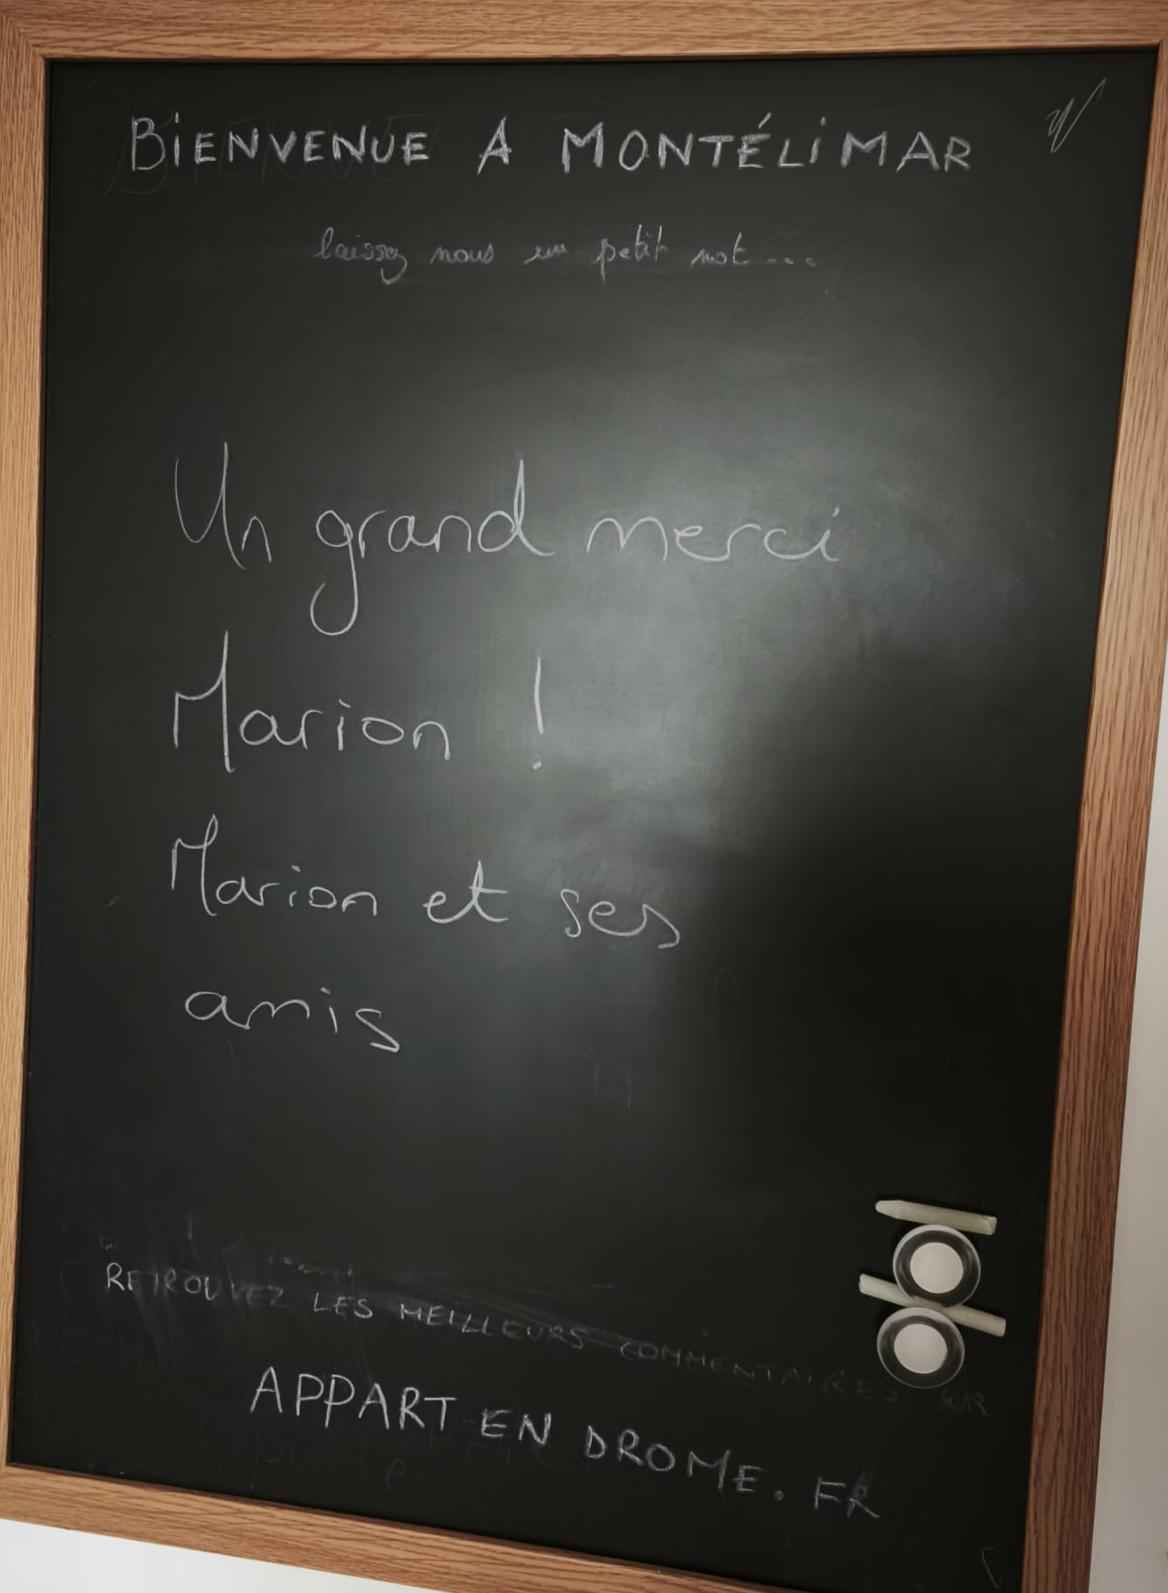 BIENVENUE A MONTÉLIMAR
laissez nous un petit mot...
Un grand merci
Marion !
Marion et ses
amis
RETROUVEZ LES MEILLEURS COMMENTAIRES SUR
APPART EN DROME.FR